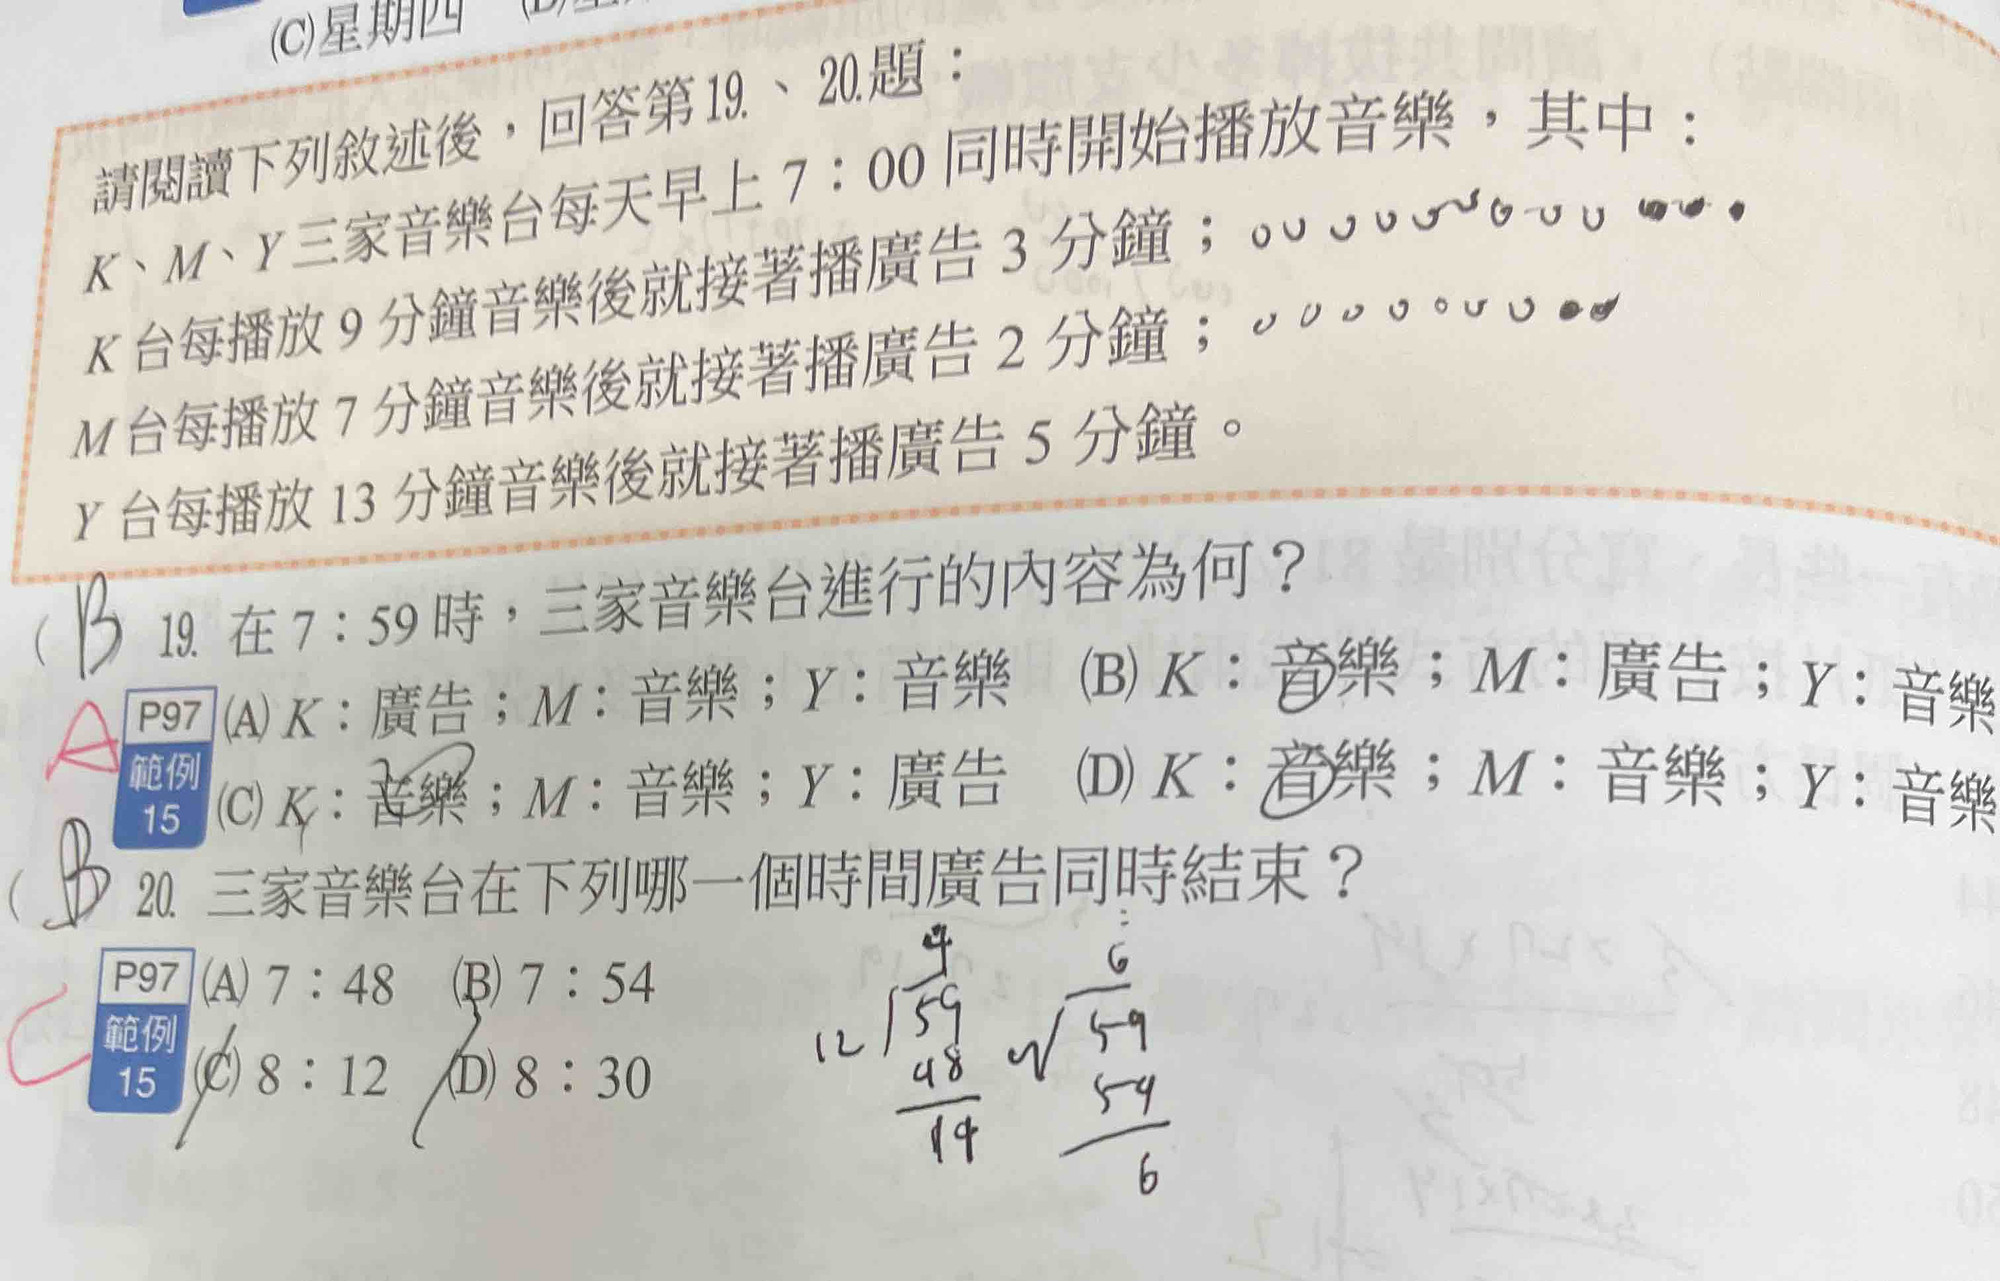 (C)星期四
請閱讀下列敘述後，回答第19.、20.題：
K、M、Y三家音樂台每天早上7：00同時開始播放音樂，其中：
K台每播放9分鐘音樂後就接著播廣告3分鐘；
M台每播放7分鐘音樂後就接著播廣告2分鐘；
Y台每播放13分鐘音樂後就接著播廣告5分鐘。
(B 19. 在7：59時，三家音樂台進行的內容為何？
A P97 範例 15 (A) K：廣告；M：音樂；Y：音樂 (B) K：音樂；M：廣告；Y：音樂
(C) K：音樂；M：音樂；Y：廣告 (D) K：音樂；M：音樂；Y：音樂
(B 20. 三家音樂台在下列哪一個時間廣告同時結束？
C P97 範例 15 (A) 7：48 (B) 7：54
(C) 8：12 (D) 8：30
4
12 59
48
6
59
54
6